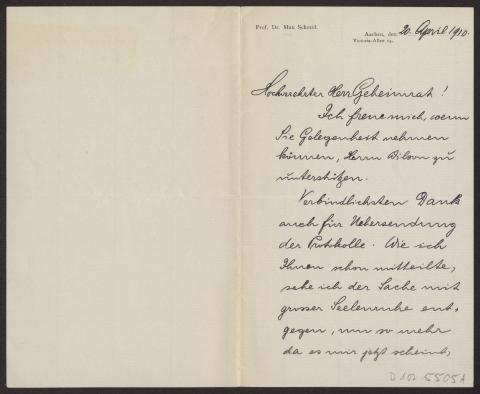 Prof. Dr. Max Schmid.
Aachen, den 20. April 1910.
Victoria-Allee 14.
Hochverehrter Herr Geheimrat!
Ich freue mich, wenn
Sie Gelegenheit nehmen
können, Herrn zu
unterstützen.
Verbindlichsten Dank
auch für Uebersendung
der Protokolle. Wie ich
Ihnen schon mitteilte,
sehe ich der Sache mit
grosser Seelenruhe ent-
gegen, um so mehr
da es mir jetzt scheint,
D 102 5505A